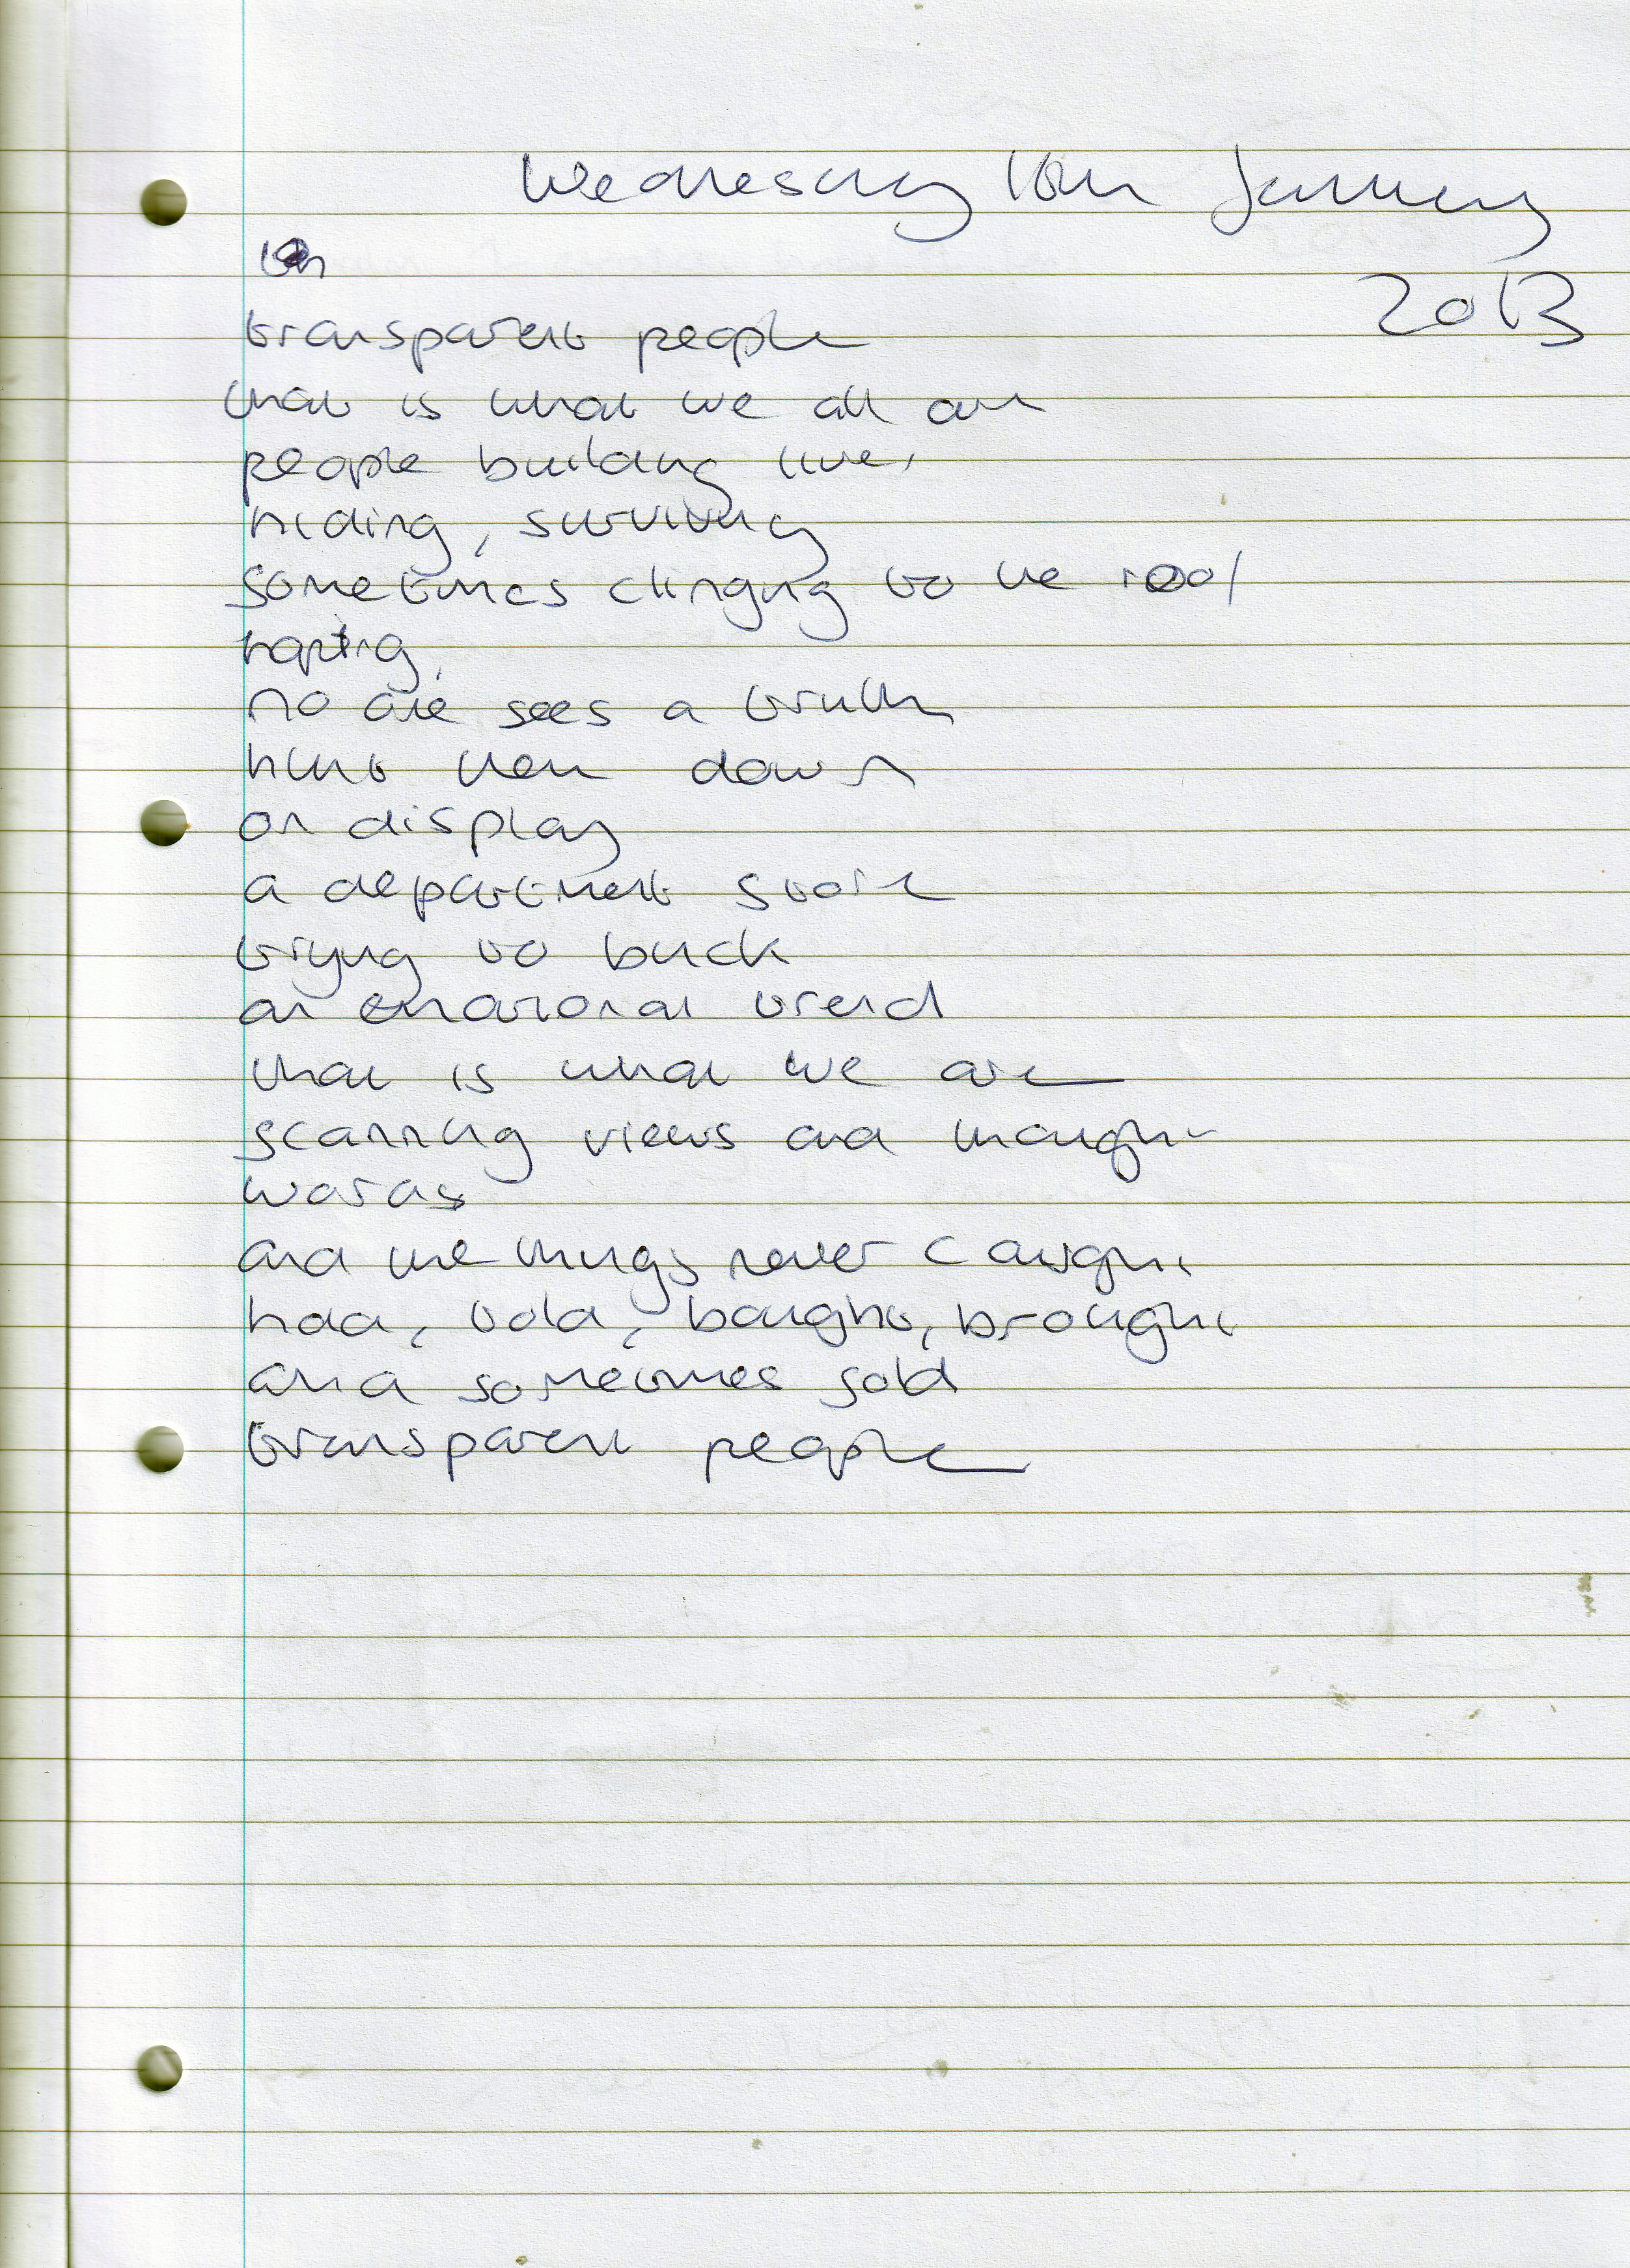 Wednesday 16th January
2013
transparent people
that is what we all are
people building lives
hiding, surviving
sometimes clinging to the roof
hoping,
no one sees a truth
hunt them down
on display
a department store
trying to buck
an emotional trend
that is what we are
scanning views and thought
words
and the things never caught
held, told, bought, brought
and sometimes sold
transparent people